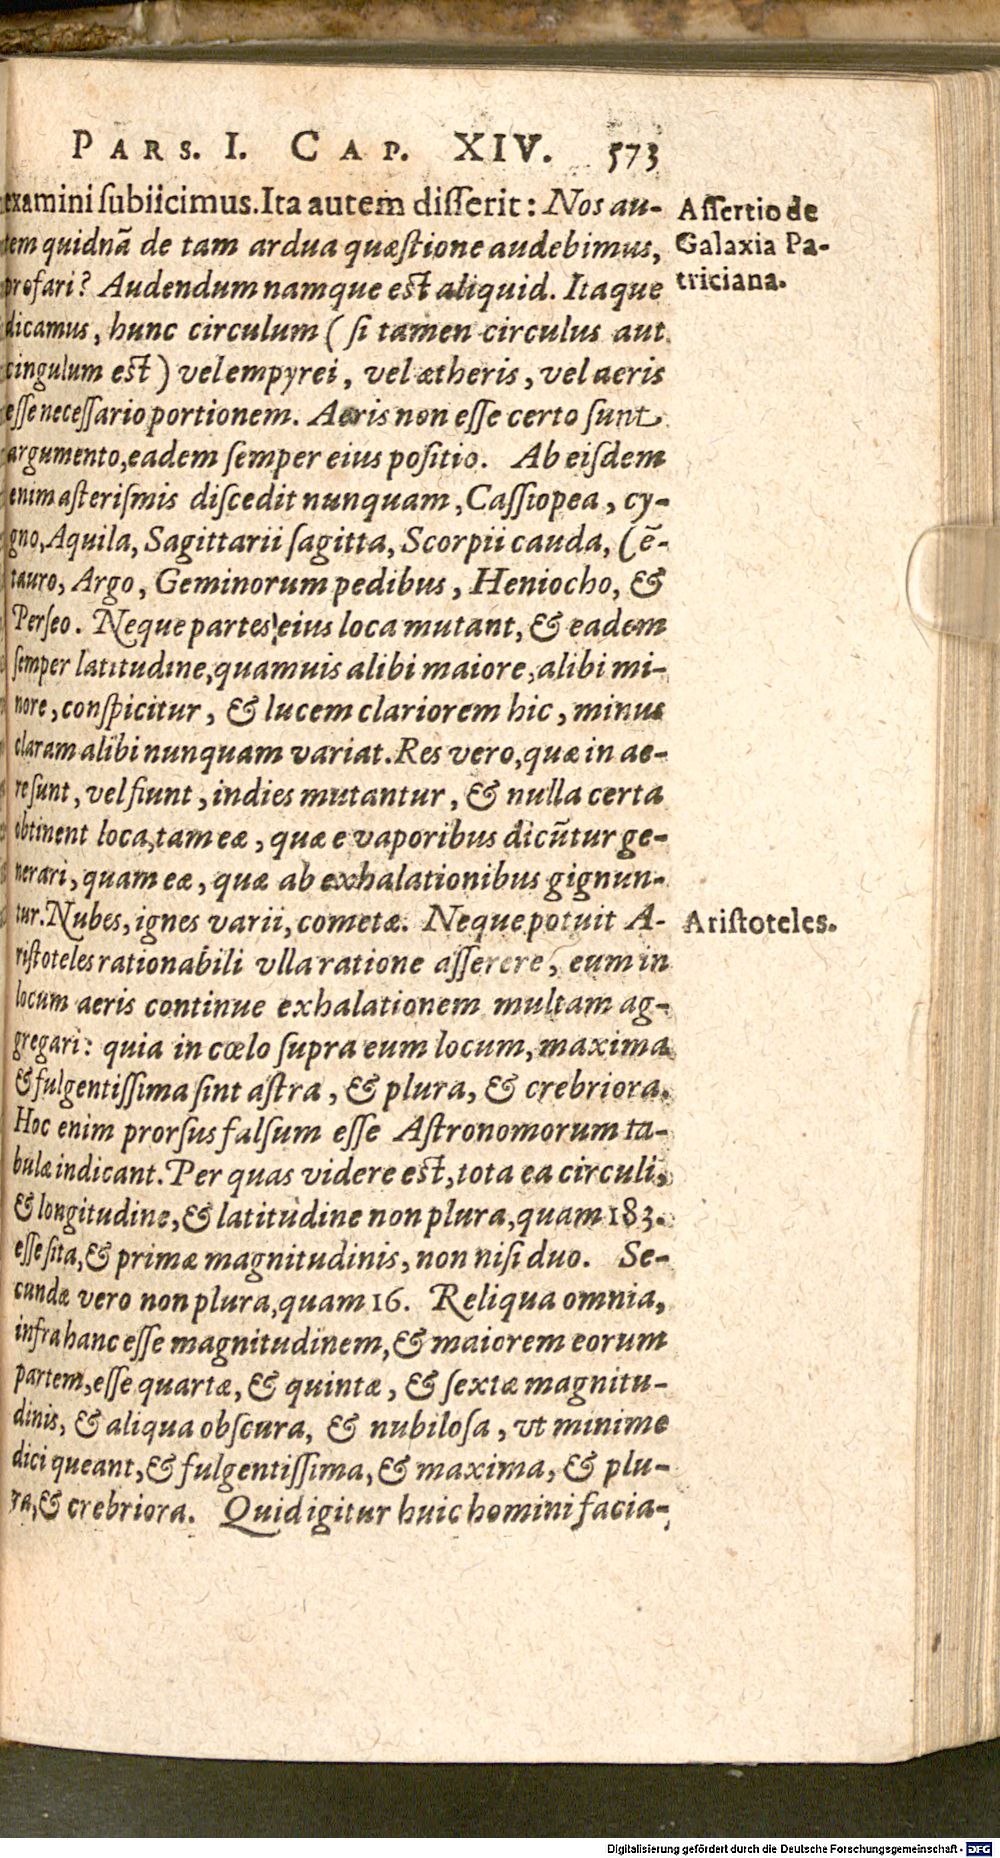 PARS. I. CAP. XIV. 573
examini ſubiicimus. Ita autem diſſerit: Nos au-
Aſſertio de
Galaxia Pa-
triciana.
tem quidnã de tam ardua quæſtione audebimus,
profari? Audendum namque eſt aliquid. Itaque
dicamus, hunc circulum (ſi tamen circulus aut
cingulum eſt) vel empyrei, vel ætheris, vel aeris
eſſe neceſſario portionem. Aeris non eſſe certo ſunt
argumento, eadem ſemper eius poſitio. Ab eiſdem
enim aſteriſmis diſcedit nunquam, Caſſiopea, cy-
gno, Aquila, Sagittarii ſagitta, Scorpii cauda, Cẽ-
tauro, Argo, Geminorum pedibus, Heniocho, &
Perſeo. Neque partes eius loca mutant, & eadem
ſemper latitudine, quamuis alibi maiore, alibi mi-
nore, conſpicitur, & lucem clariorem hic, minus
claram alibi nunquam variat. Res vero, quæ in ae-
re ſunt, vel fiunt, indies mutantur, & nulla certa
obtinent loca, tam eæ, quæ e vaporibus dicũtur ge-
nerari, quam eæ, quæ ab exhalationibus gignun-
tur. Nubes, ignes varii, cometæ. Neque potuit A-
Ariſtoteles.
riſtoteles rationabili vlla ratione aſſerere, eum in
locum aeris continue exhalationem multam ag-
gregari: quia in cœlo ſupra eum locum, maxima
& fulgentiſſima ſint aſtra, & plura, & crebriora.
Hoc enim prorſus falſum eſſe Aſtronomorum ta-
bulæ indicant. Per quas videre eſt, tota ea circuli,
& longitudine, & latitudine non plura, quam 183.
eſſe ſita, & primæ magnitudinis, non niſi duo. Se-
cundæ vero non plura, quam 16. Reliqua omnia,
infra hanc eſſe magnitudinem, & maiorem eorum
partem, eſſe quartæ, & quintæ, & ſextæ magnitu-
dinis, & aliqua obſcura, & nubiloſa, vt minime
dici queant, & fulgentiſſima, & maxima, & plu-
ra, & crebriora. Quid igitur huic homini facia-
Digitalisierung gefördert durch die Deutsche Forschungsgemeinschaft - DFG